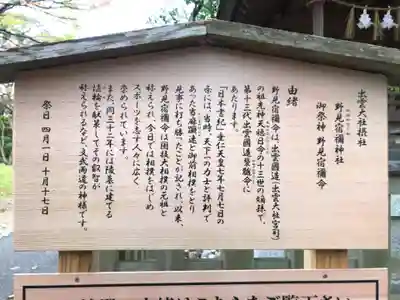 出雲大社摂社
野見宿禰神社
御祭神 野見宿禰命
由緒
野見宿禰命は、出雲國造（出雲大社宮司）
の祖先神天穂日命の十三世の嫡孫で、
第十三代出雲國造襲髄命に
あたります。
『日本書紀』垂仁天皇七年七月七日の
条には、当時、天下一の力士と評判で
あった当麻蹶速と御前相撲をとり
見事に打ち勝ったことが記され、以来、
野見宿禰命は国技大相撲の元祖と
称えられ、今日では相撲をはじめ
スポーツを志す人々に広く
崇められています。
また、同三十二年には陵墓に建てる
埴輪を献策してその叡智が
称えられるなど、文武両道の神様です。
祭日 四月一日 十月十七日